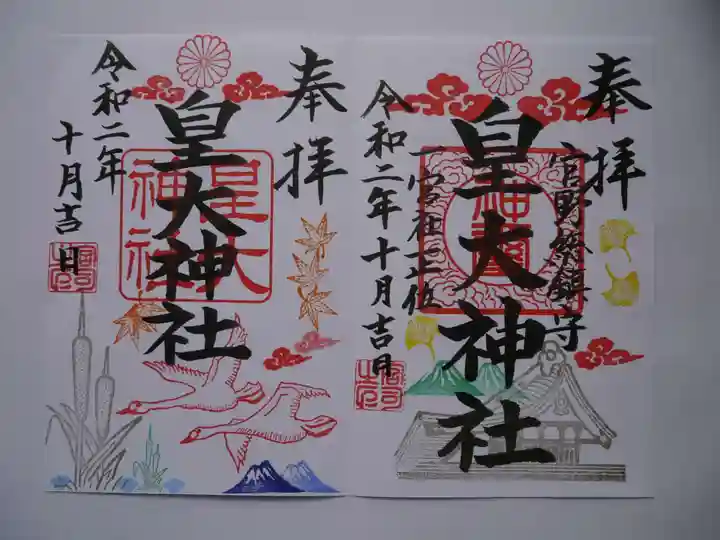 奉拝
宮野総鎮守
皇大神社
一宮社正一位
令和二年十月吉日
奉拝
皇大神社
皇大神社
令和二年
十月吉日